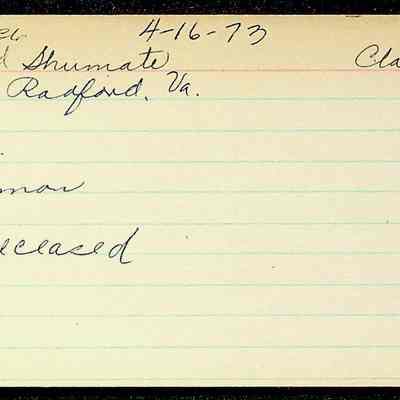 4-16-73
Shumate Cla
Radford, Va.
mon
eceased